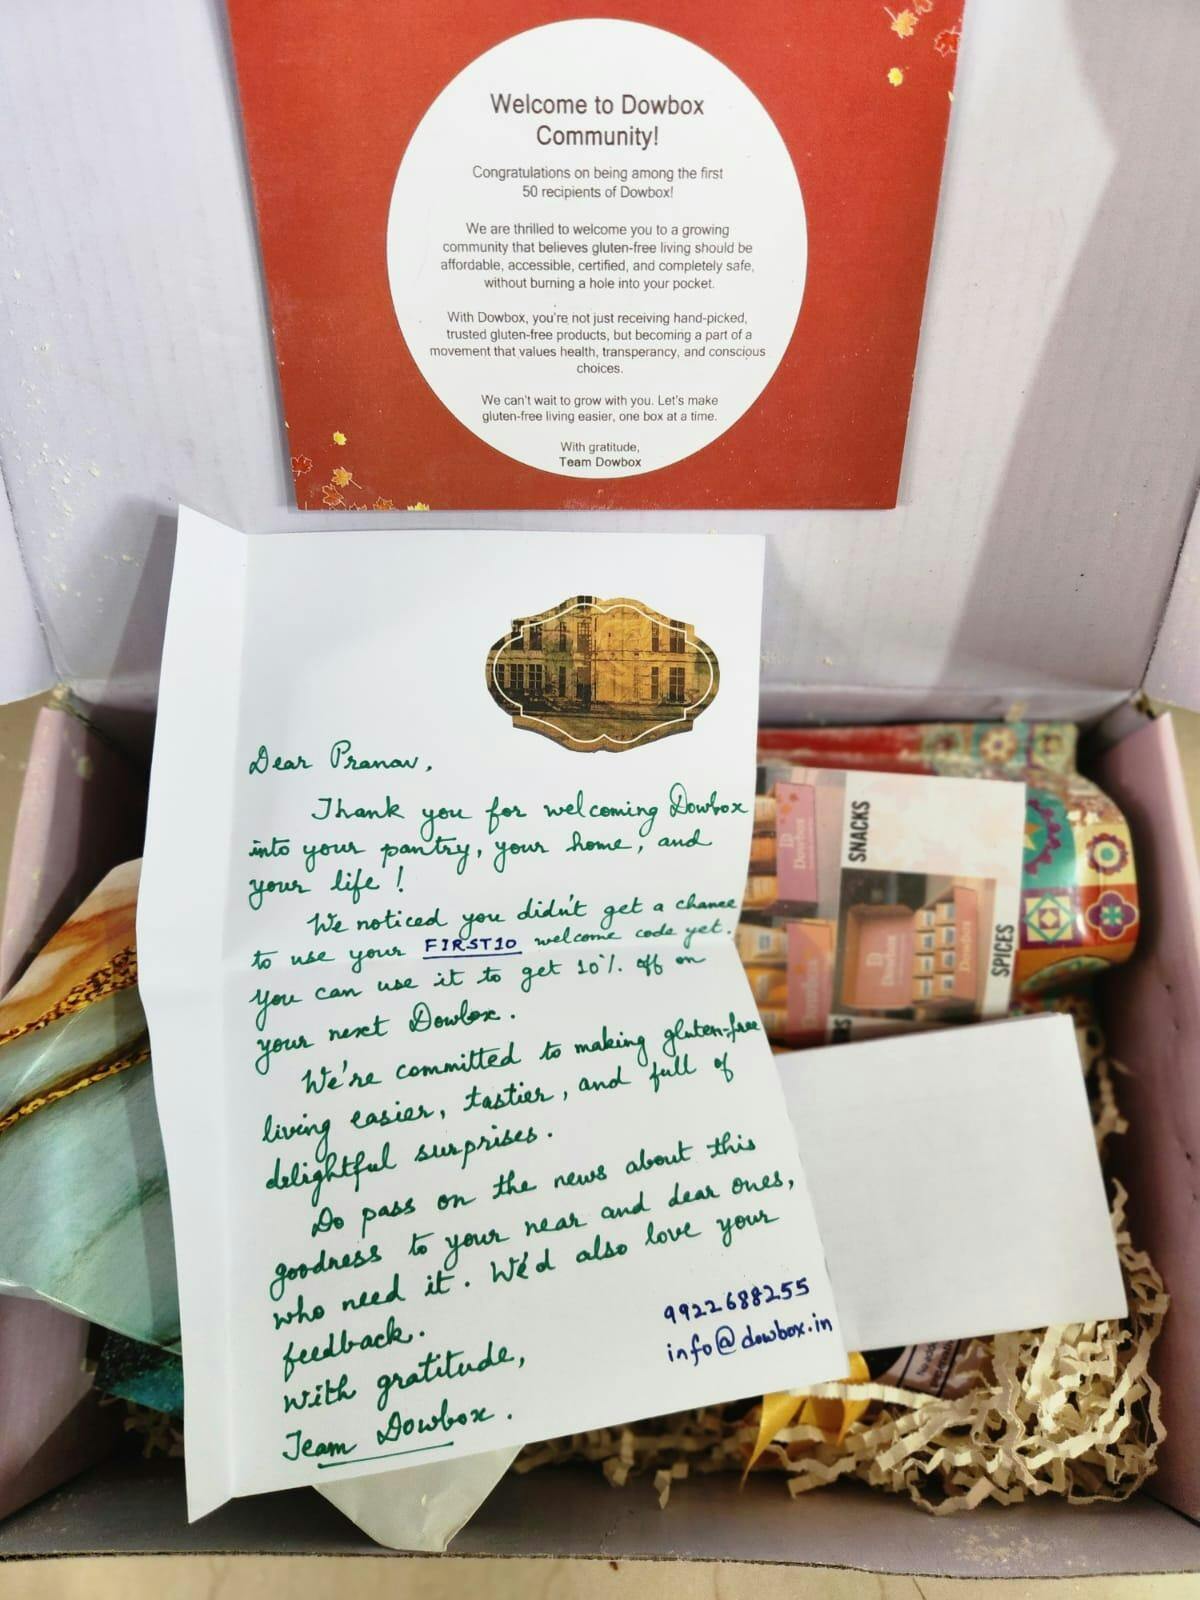 Welcome to Dowbox
Community!
Congratulations on being among the first
50 recipients of Dowbox!
We are thrilled to welcome you to a growing
community that believes gluten-free living should be
affordable, accessible, certified, and completely safe,
without burning a hole into your pocket.
With Dowbox, you're not just receiving hand-picked,
trusted gluten-free products, but becoming a part of a
movement that values health, transperancy, and conscious
choices.
We can't wait to grow with you. Let's make
gluten-free living easier, one box at a time.
With gratitude,
Team Dowbox
Dear Pranav,
Thank you for welcoming Dowbox
into your pantry, your home, and
your life!
We noticed you didn't get a chance
to use your FIRST10 welcome code yet.
You can use it to get 10% off on
your next Dowbox.
We're committed to making gluten-free
living easier, tastier, and full of
delightful surprises.
Do pass on the news about this
goodness to your near and dear ones,
who need it. We'd also love your
feedback.
With gratitude,
Team Dowbox.
9922688255
info@dowbox.in
SNACKS
SPICES
Dowbox
Dowbox
Dowbox